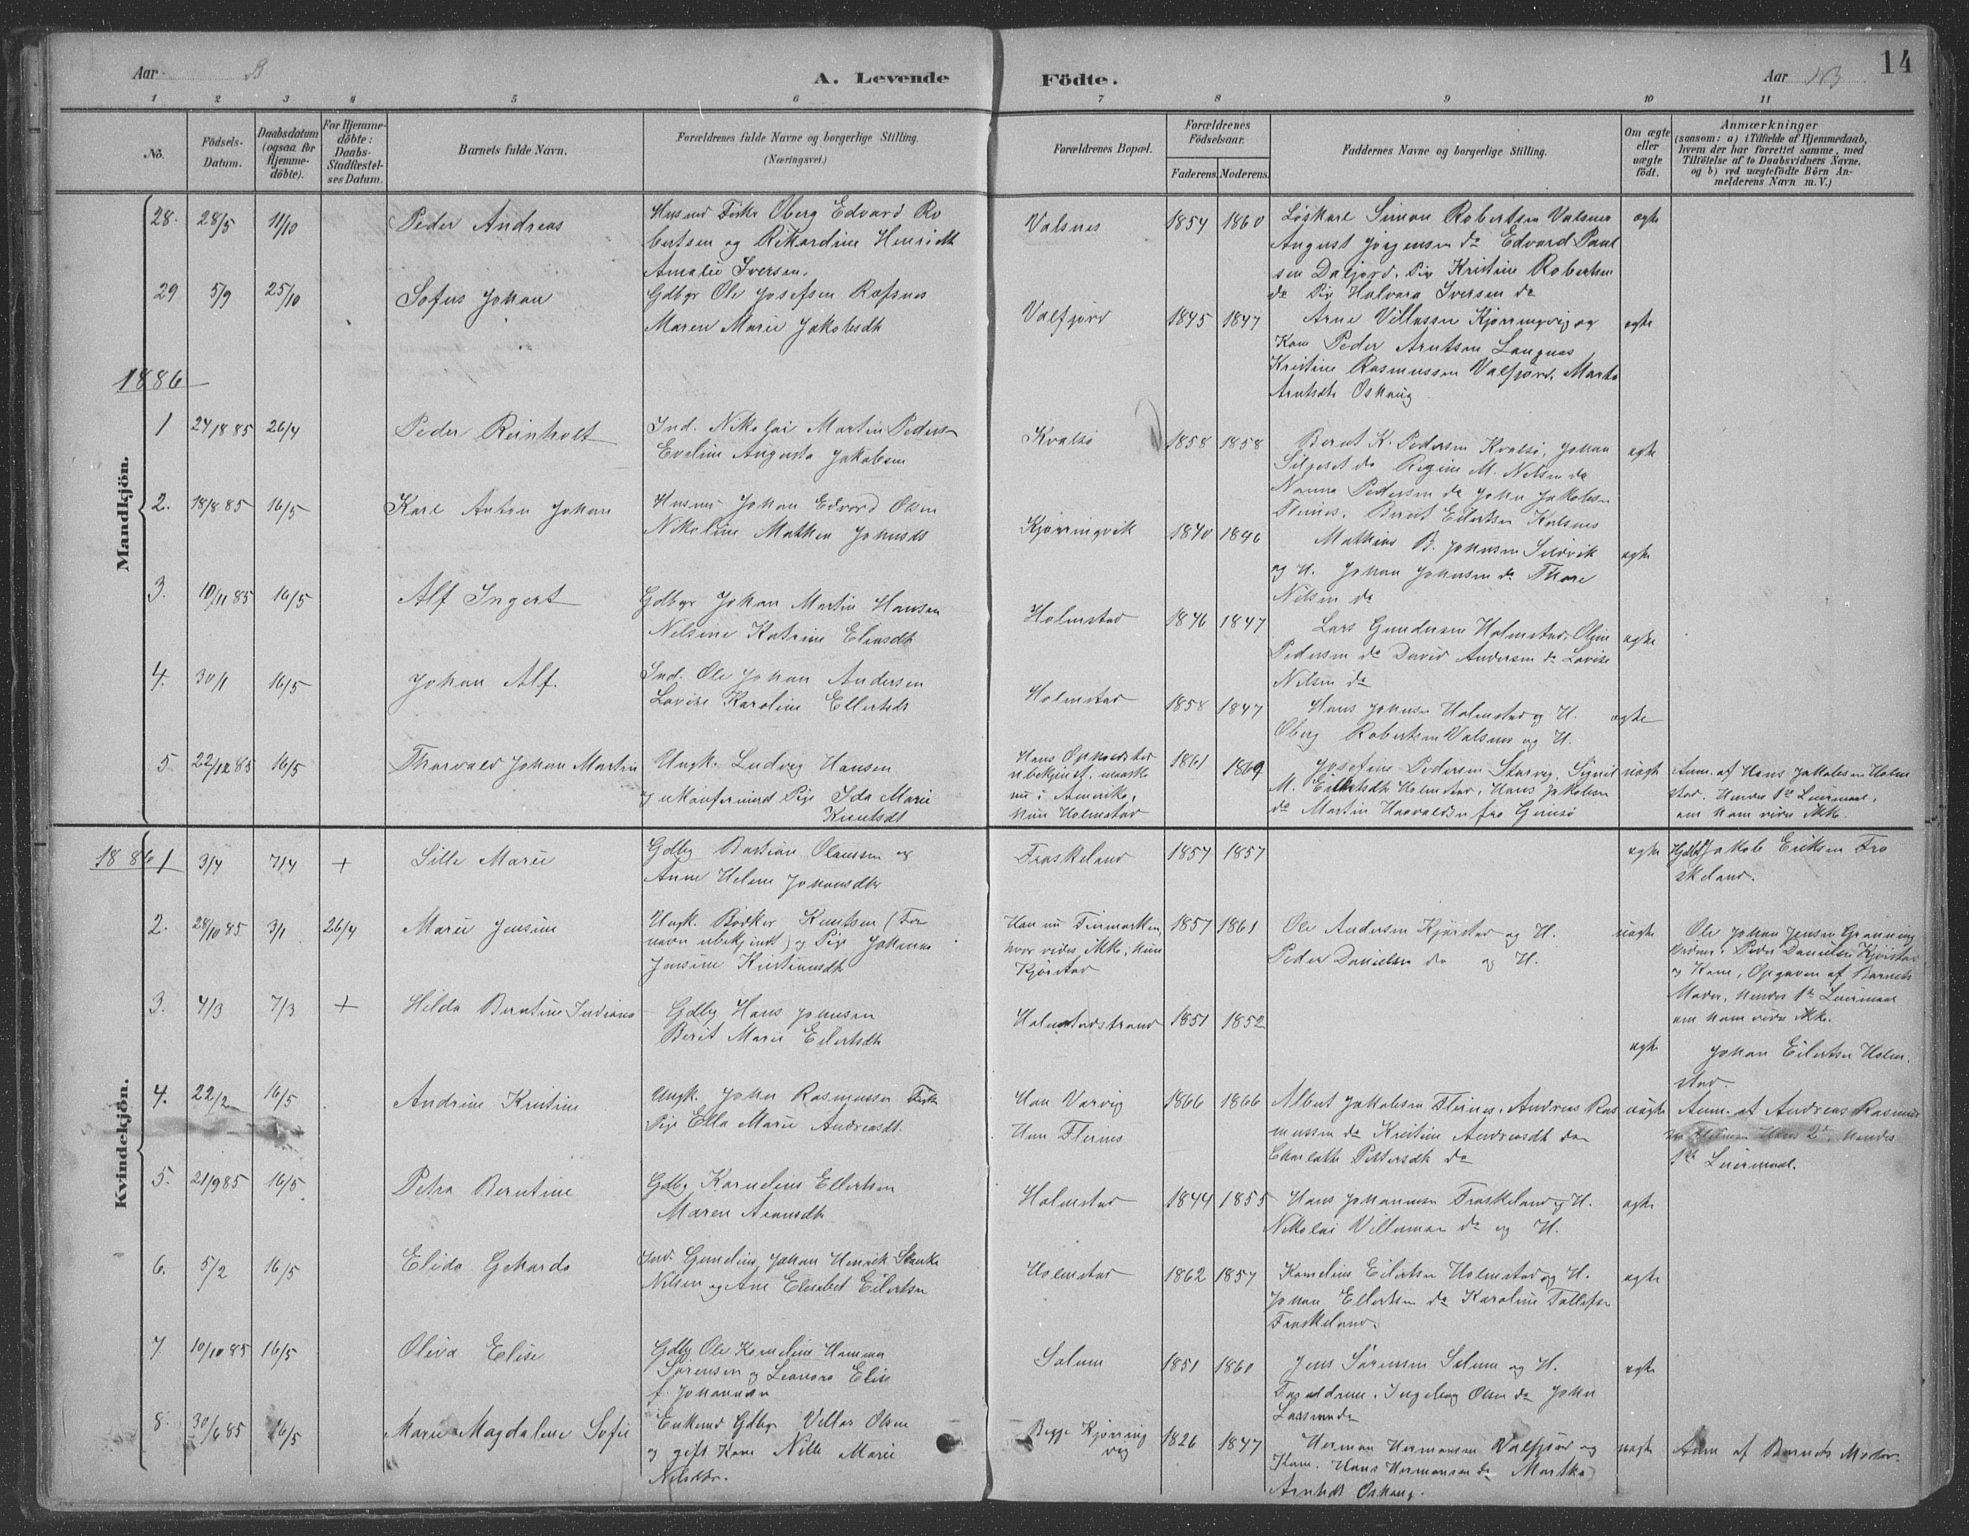 Aar B A. Levende
Födte. Aar NB 14
1 2 3 4 5 6 7 8 9 10 11
No. Födsels-Datum. Daabsdatum (ogsaa for Hjemmedöbte). For Hjemmedöbte: Daabs-Stadfæstelses Datum. Barnets fulde Navn. Forældrenes fulde Navne og borgerlige Stilling. (Næringsvei.) Forældrenes Bopæl. Forældrenes Födselsaar. Faderens. Moderens. Faddernes Navne og borgerlige Stilling. Om ægte eller uægte födt. Anmærkninger (saasom: a) i Tilfælde af Hjemmedaab, hvem der har forrettet samme, med Tilföielse af to Daabsvidners Navne, og b) ved uægtefödte Börn Anmelderens Navn m. V.)
Mandkjön.
28. 28/5 11/10 Peder Andreas Husmd Fisker Oberg Edvard Ro
bertsen og Rikardine Henriette
Amalie Iversen. Valsnes 1854 1860 Løskarl Simon Robertsen Valsnes
August Jørgensen do Edvard Paul
sen Dalfjord. Pige Kristine Robertsen
do Pige Halvara Iversen do ægte
29 5/9 25/10 Sofus Johan Gdbgr Ole Josefsen Ræfsnes
Maren Marie Jakobsdt Valfjord 1845 1847 Arne Villassen Kjørringvig og
Kone Peder Arntsen Langnes
Kristine Rasmussen Valfjord. Marta
Arntsdt Oshaug ægte
1886
1 24/1885 26/4 Peder Reinholt Ind. Nikolai Martin Pedersen
Eveline Augusta Jakobsen Kvalsø 1858 1858 Berat K. Pedersen Kvalsø, Johan
do Regine M. Nilsen do
Nanna Pedersen do John Jakobsen
Flernes. Berat Eilertsen Kalsnes ægte
2. 18/8 85 16/5 Karl Anton Johan Husmd Johan Edvard Olsen
Nikoline Mathea Johnsdt Kjørringvik 1840 1846 Mathias B. Johnsen Sildvik
og H. Johan Johnsen do Thore
Nilsen do ægte
3. 10/11 85 16/5 Alf Ingert Gdbgr Johan Martin Hansen
Nilsine Katrine Eliasdt Holmstad 1846 1847 Lars Gundersen Holmstad, Oline
Pedersen do David Andersen do Lovise
Nilsen do ægte
4. 30/1 16/5 Johan Alf. Ind. Ole Johan Andersen
Lovise Karoline Ellertsdt Holmstad 1858 1847 Hans Johnsen Holmstad og H.
Oberg Robertsen Valsnes og H. ægte
5 22/12 85 16/5 Thorvald Johan Martin Ungk. Ludvig Hansen
og ukonfirmerd Pige Ida Marie
Knutsdt Hans Opholdsted
ubekjendt, maaske
nu i Amerika,
Hun Holmstad 1861 1869 Josefine Pedersen Starvig, Sigvil
M. Eilertsdt Holmstad, Hans Jakobsen
do Martin Haavaldsen fra Gimsø uægte Anm. af Hans Jakobsen Holm
stad. Hendes 1ste Leiermaal,
om ham vides ikke.
Kvindekjön.
1886 1 3/4 7/4 + Sille Marie Gdbg Bastian Olaussen og
Anne Helene Johansdtr Fraskeland 1857 1857 ægte Gdbr Jakob Eriksen Fra
skeland.
2. 28/10 85 3/1 26/4 Marie Jensine Ungk. Bødker Knutsen (For
navn ubekjendt) og Pige Johanna
Jensine Kristiansdt Han nu Finmarken,
hvor vides ikke, hun
Kjørstad 1857 1861 Ole Andersen Kjørstad og H.
Peder Danielsen do og H. uægte Ole Johan Jensen Grønning
Vidner: Peder Danielsen Kjørstad
og Kone, Opgaven af Barnets
Moder, hendes 1ste Leiermaal
om ham vides ikke.
3. 4/3 7/3 + Hilda Berntine Indiana Gdbg Hans Johnsen
Berit Marie Eilertsdt Holmstadstrand 1851 1852 ægte Johan Eilertsen Holm
stad.
4. 22/2 16/5 Andrine Kristine Ungk. John Rasmussen Fisker
Pige Ella Marie Andreasdt. Han Varvig
Hun Flernes 1866 1866 Albert Jakobsen Flernes, Andreas Ras
mussen do Kristine Andreasdt do
Charlotte Pettersdt do uægte Anm. af Andreas Rasmus
sen Flernes Hans 2det Hendes
1ste Leiermaal.
5. 21/9 85 16/5 Petra Berntine Gdbg Kornelius Ellertsen
Maren Aronsdt Holmstad 1844 1855 Hans Johannessen Fraskeland og H.
Nikolai Villumsen do og H. ægte
6. 5/2 16/5 Elida Geharda Ind. Cornelius Johan Henrik Stanke
Nilsen og Ane Elisabet Eilertsen Holmstad 1862 1857 Kornelius Eilertsen Holmstad og H.
Johan Ellertsen do Karoline Tollefsen
Fraskeland. ægte
7 10/10 85 16/5 Oliva Elise Gdbg Ole Kornelius Hammer
Sørensen og Leonora Elise
f. Johannesen Selnes 1851 1860 Jens Sørensen Selnes og H.
Forældrene. Ingeborg Olsen do John
Larssen do ægte
8. 30/6 85 16/5 Marie Magdalene Sofie Enkemd Gdbgr Villas Olsen
og gift Kone Nille Marie
Nilsdtr. Begge Kjørring
vig 1826 1847 Herman Hermansen Valfjord og
Kone. Hans Hermansen do Martha
Arntsdt Oshaug. uægte Anm af Barnets Moder.